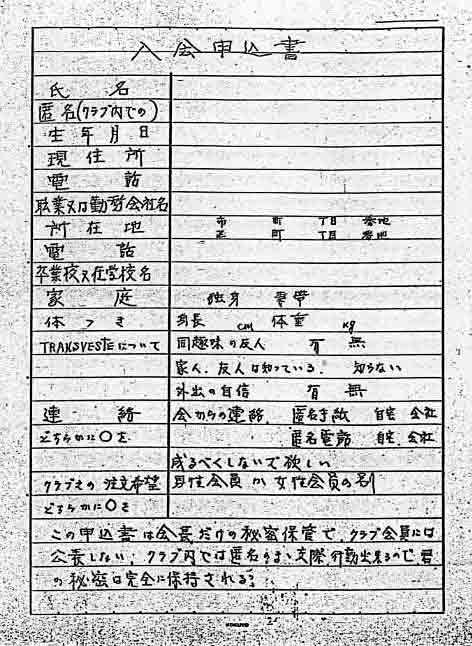 入会申込書
氏名
匿名(クラブ内での)
生年月日
現住所
電話
職業又は勤務会社名
所在地 市 町 丁目 番地
区 町 丁目 番地
電話
卒業校又在学校名
家庭 独身 妻帯
体つき 身長 cm 体重 kg
TRANSVESTEについて 同趣味の友人 有 無
家人、友人は知っている、 知らない
外出の自信 有 無
連絡 会からの連絡、 匿名手紙 自宅 会社
どちらかに○を 匿名電話 自宅 会社
成るべくしないで欲しい
クラブえの注文希望 男性会員か女性会員の別
どちらかに○を
この申込書は会長だけの秘密保管で、クラブ会員には
公表しない、クラブ内では匿名のまゝ交際行動出来るので君
の秘密は完全に保持される。
KOKUYO